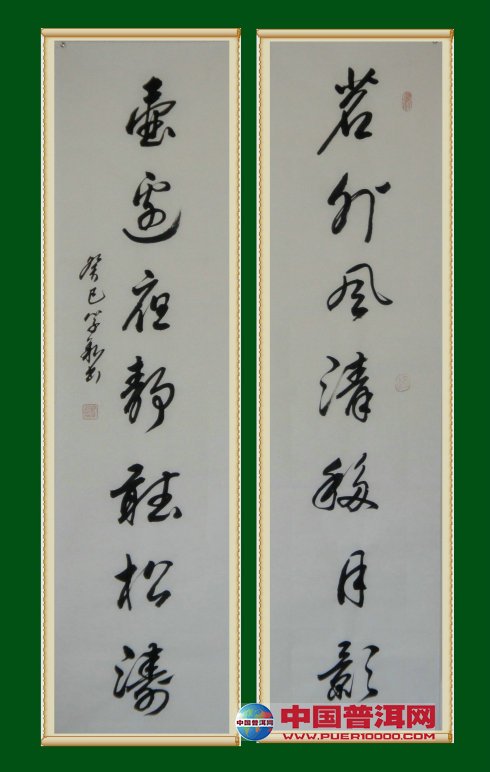 茗外风清移月影
壺邊夜靜聽松濤
癸巳
中国普洱网
WWW.PUER10000.COM